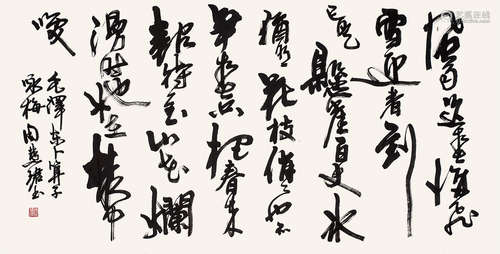 風雨送春歸飛
雪迎春到
已是懸崖百丈冰
猶有花枝俏俏也不
争春只把春來
報待到山花爛
漫時她在叢中
笑
毛澤东卜算子
咏梅周慧珺书